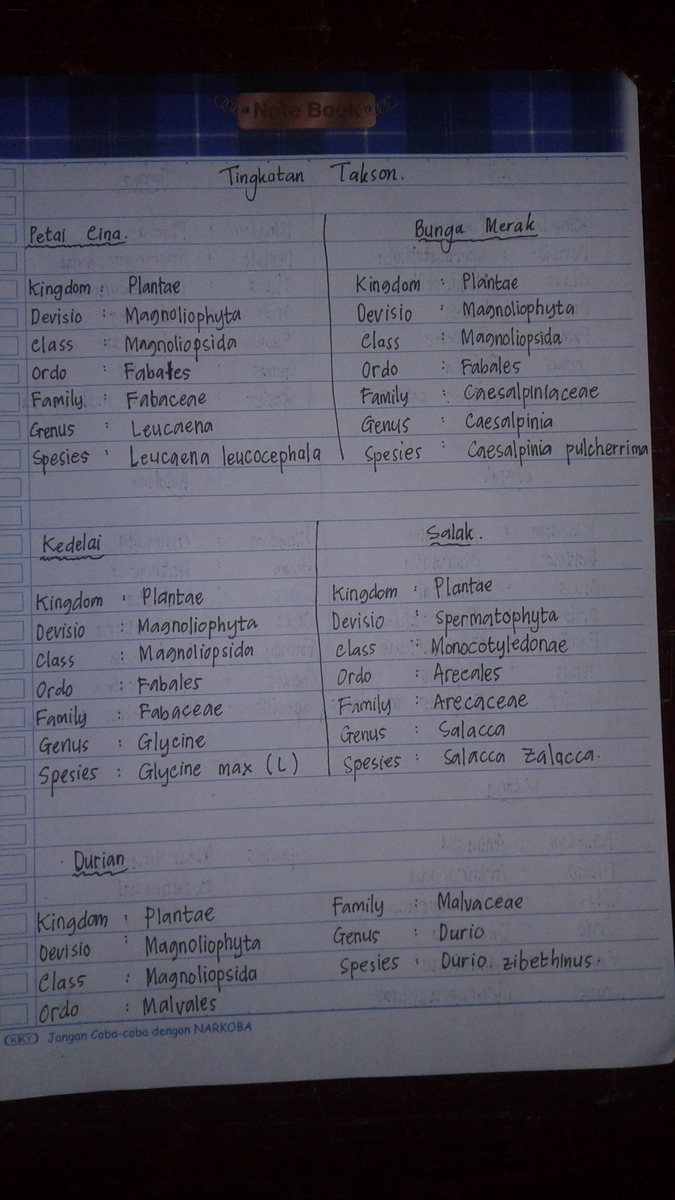 Note Book
Tingkatan Takson.
Petai Cina.
Kingdom : Plantae
Devisio : Magnoliophyta
Class : Magnoliopsida
Ordo : Fabales
Family : Fabaceae
Genus : Leucaena
Spesies : Leucaena leucocephala
Bunga Merak
Kingdom : Plantae
Devisio : Magnoliophyta
Class : Magnoliopsida
Ordo : Fabales
Family : Caesalpiniaceae
Genus : Caesalpinia
Spesies : Caesalpinia pulcherrima
Kedelai
Kingdom : Plantae
Devisio : Magnoliophyta
Class : Magnoliopsida
Ordo : Fabales
Family : Fabaceae
Genus : Glycine
Spesies : Glycine max (L)
Salak.
Kingdom : Plantae
Devisio : Spermatophyta
Class : Monocotyledonae
Ordo : Arecales
Family : Arecaceae
Genus : Salacca
Spesies : Salacca Zalacca.
Durian
Kingdom : Plantae
Devisio : Magnoliophyta
Class : Magnoliopsida
Ordo : Malvales
Family : Malvaceae
Genus : Durio
Spesies : Durio zibethinus.
KIKY Jangan Coba-coba dengan NARKOBA